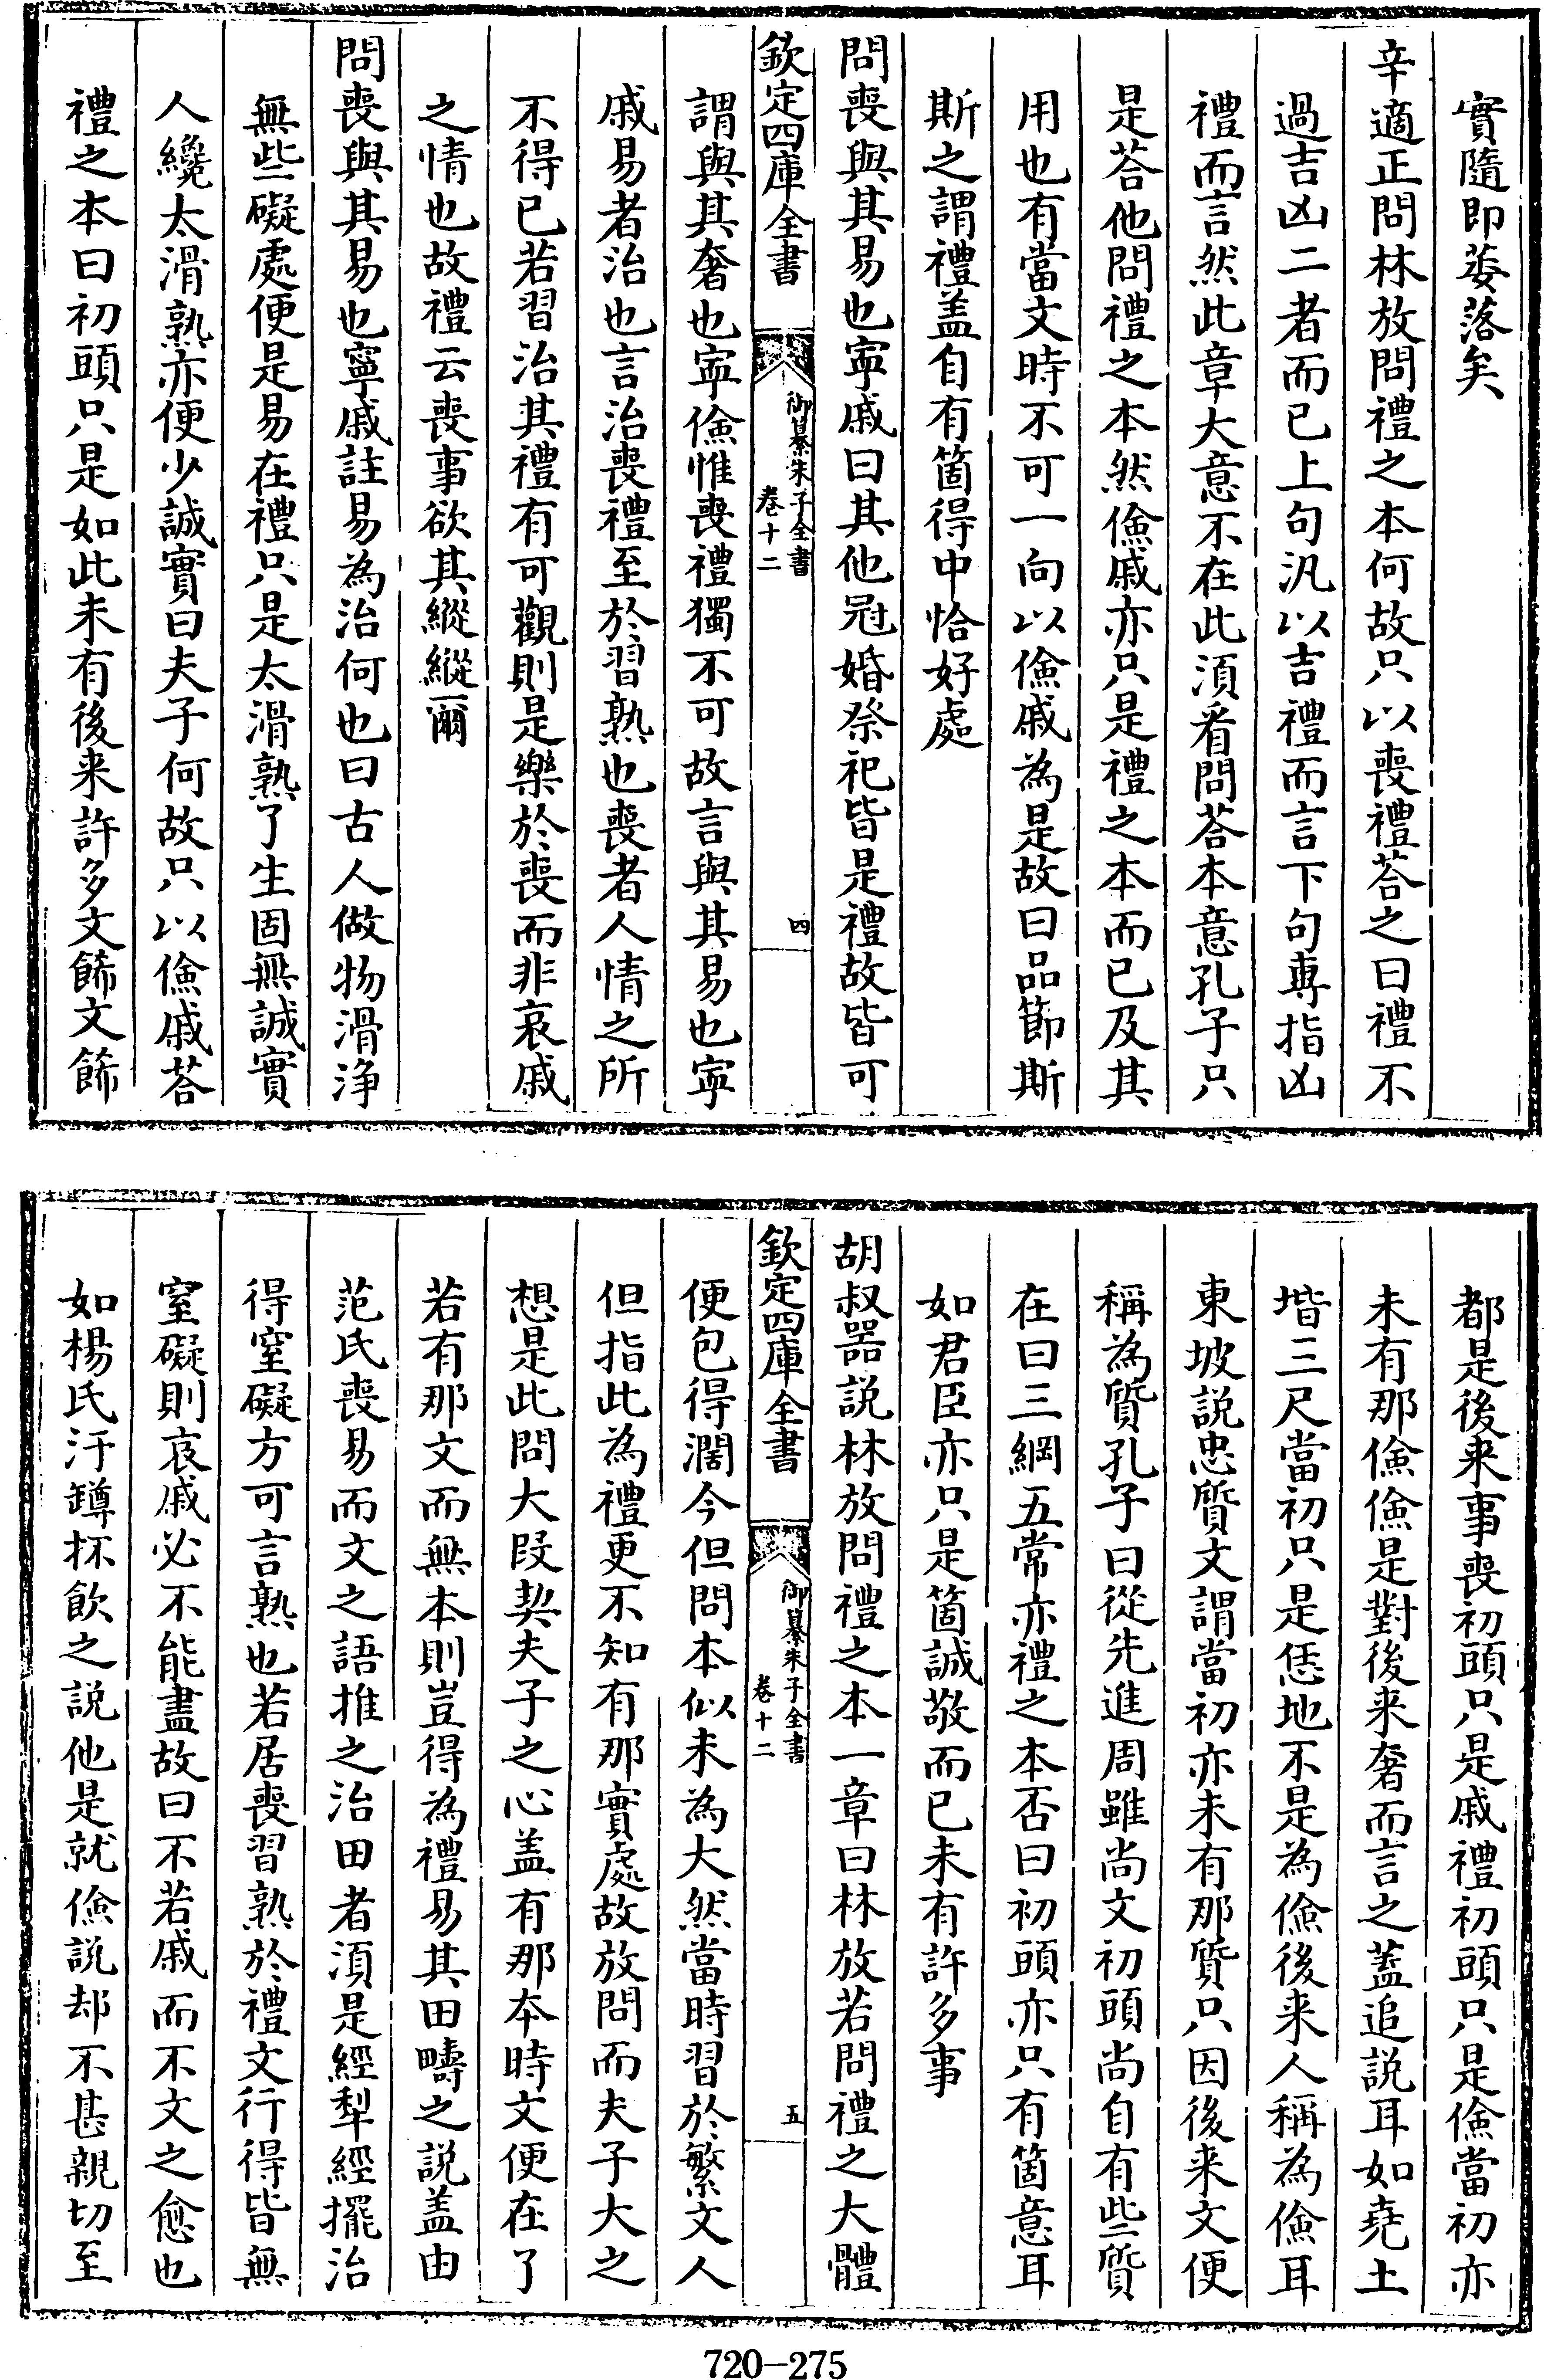 實隨即蔆落矣
辛適正問林放問禮之本何故只以喪禮荅之曰禮不
過吉凶二者而已上句汎以吉禮而言下句專指凶
禮而言然此章大意不在此須看問荅本意孔子只
是荅他問禮之本然儉戚亦只是禮之本而已及其
用也有當文時不可一向以儉戚為是故曰品節斯
斯之謂禮盖自有箇得中恰好處
問喪與其易也寧戚曰其他冠婚祭祀皆是禮故皆可
欽定四庫全書
御纂朱子全書
卷十二
四
謂與其奢也寧儉惟喪禮獨不可故言與其易也寧
戚易者治也言治喪禮至於習熟也喪者人情之所
不得已若習治其禮有可觀則是樂於喪而非哀戚
之情也故禮云喪事欲其縱縱爾
問喪與其易也寧戚註易為治何也曰古人做物滑净
無些礙處便是易在禮只是太滑熟了生固無誠實
人纔太滑熟亦便少誠實曰夫子何故只以儉戚荅
禮之本曰初頭只是如此未有後来許多文飾文飾
都是後来事喪初頭只是戚禮初頭只是儉當初亦
未有那儉儉是對後来奢而言之蓋追説耳如堯土
堦三尺當初只是恁地不是為儉後来人稱為儉耳
東坡説忠質文謂當初亦未有那質只因後来文便
稱為質孔子曰從先進周雖尚文初頭尚自有些質
在曰三綱五常亦禮之本否曰初頭亦只有箇意耳
如君臣亦只是箇誠敬而已未有許多事
胡叔器説林放問禮之本一章曰林放若問禮之大體
欽定四庫全書
御纂朱子全書
卷十二
五
便包得濶今但問本似未為大然當時習於繁文人
但指此為禮更不知有那實處故放問而夫子大之
想是此問大段契夫子之心盖有那本時文便在了
若有那文而無本則豈得為禮易其田疇之説盖由
范氏喪易而文之語推之治田者須是經犁經擺治
得窒礙方可言熟也若居喪習熟於禮文行得皆無
窒礙則哀戚必不能盡故曰不若戚而不文之愈也
如楊氏汙罇抔飲之説他是就儉説却不甚親切至
720-275